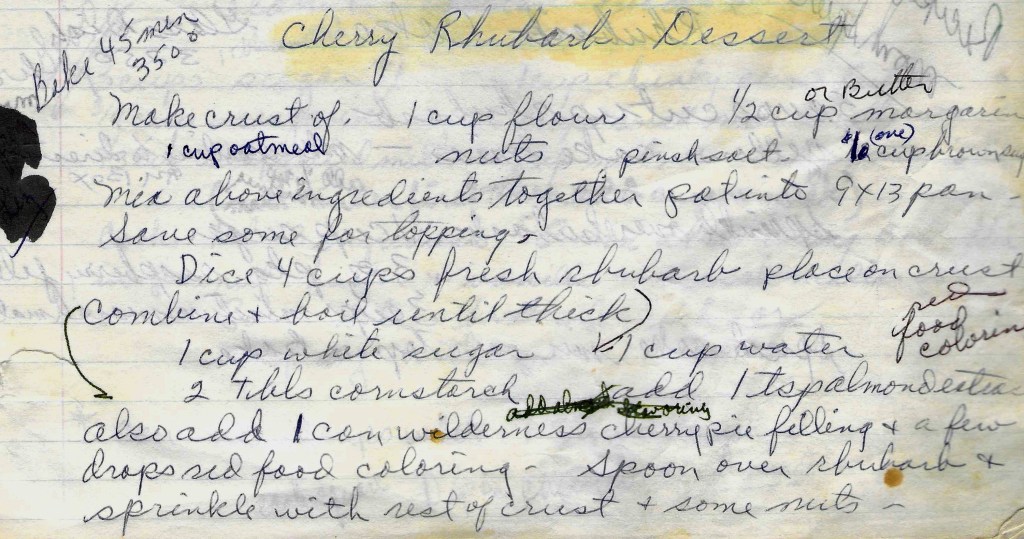 Cherry Rhubarb Dessert
Bake 45 min
350°
or Butter
Make crust of. 1 cup flour 1/2 cup margarin
1 cup oatmeal nuts pinch salt 1 (one) cup brown sug
Mix above ingredients together pat into 9x13 pan -
Save some for topping -
Dice 4 cups fresh rhubarb place on crust
(Combine + boil until thick)
1 cup white sugar 1 cup water
red
food
colorin
2 Tbls cornstarch add 1 tsp almond extrac
also add 1 can wilderness cherry pie filling + a few
drops red food coloring - Spoon over rhubarb +
sprinkle with rest of crust + some nuts -